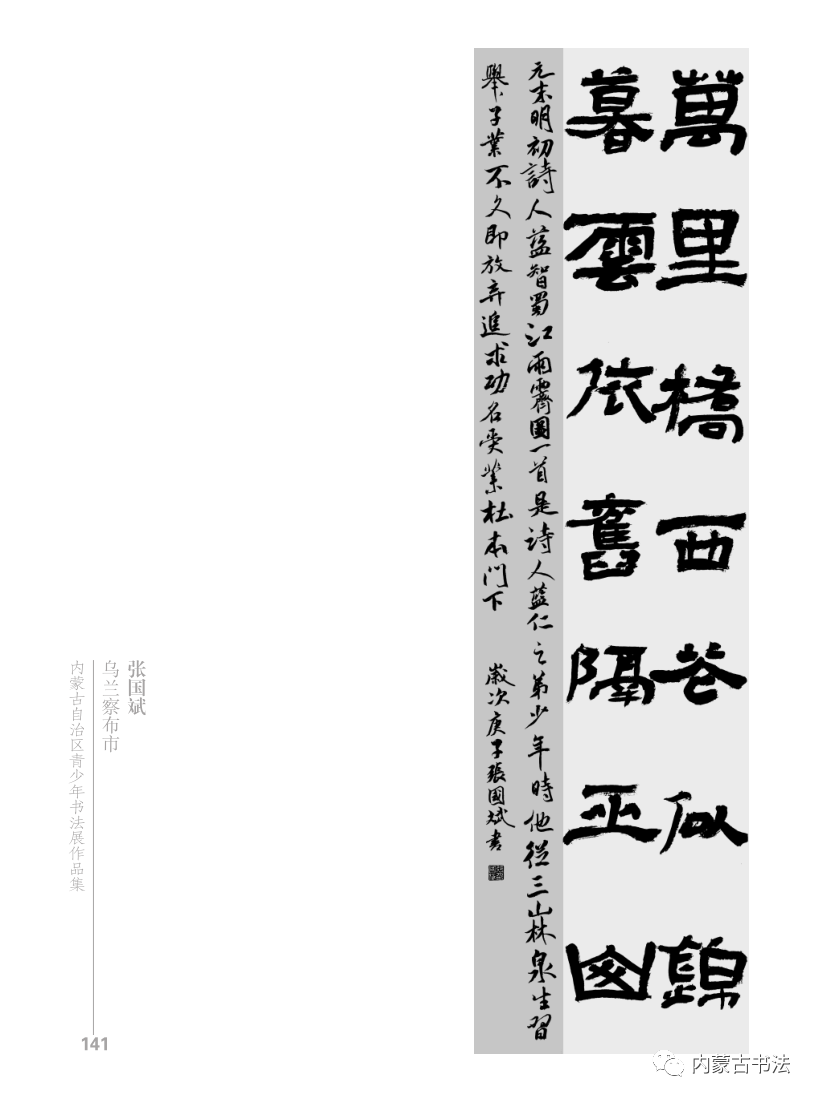 萬里橋西花似錦
暮雲依舊隔巫
元末明初詩人蓝智蜀江雨霽圖一首是诗人蓝仁之弟少年時他從三山林泉生習
舉子業不久即放弃追求功名受業杜本门下
歲次庚子張國斌書
张国斌
乌兰察布市
内蒙古自治区青少年书法展作品集
141
内蒙古书法